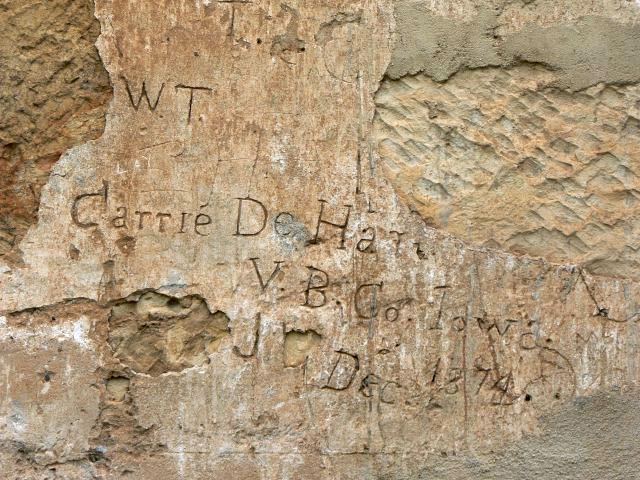 W.T
Carrié De Hart
V.B.Co. Iowa
J
Dec 1874